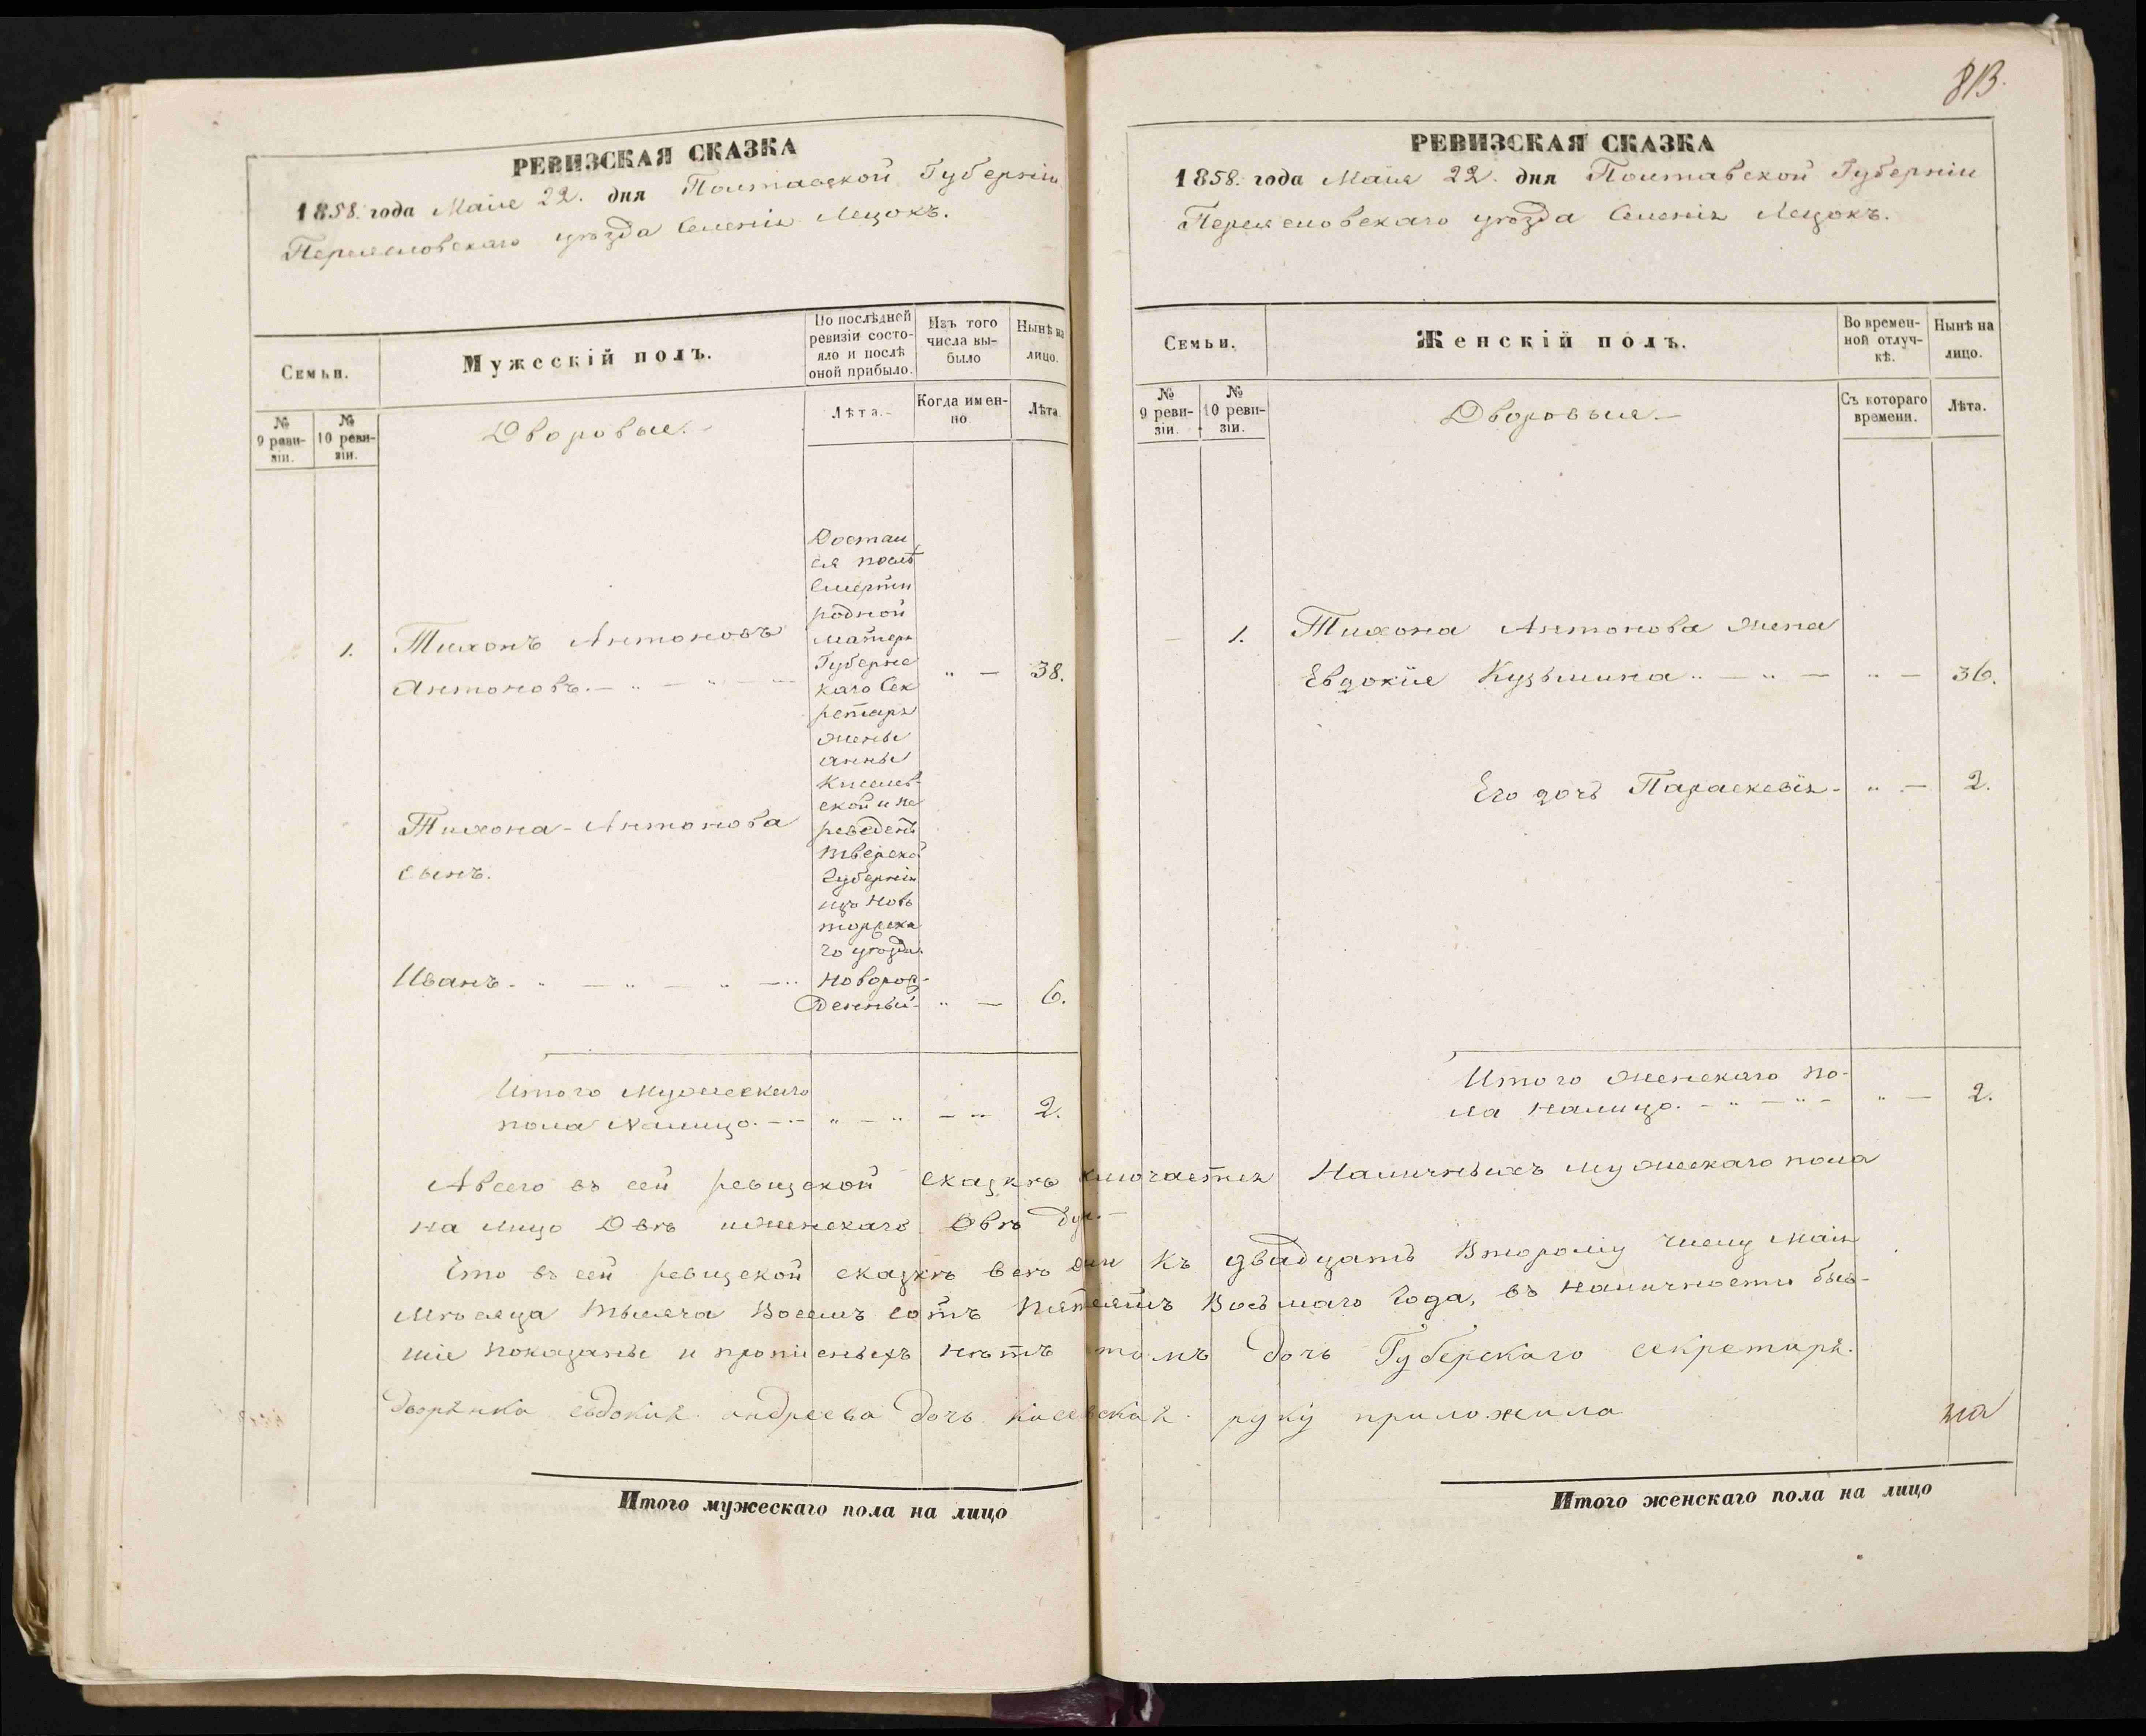 813.
РЕВИЗСКАЯ СКАЗКА
1858. года Маія 22. дня Полтавской Губерніи
Переяславскаго уѣзда Селенія Лецокъ.
Семьи.
Мужескій полъ.
По послѣдней ревизіи состояло и послѣ оной прибыло.
Изъ того числа выбыло
Нынѣ на лицо.
№ 9 ревизіи.
№ 10 ревизіи.
Дворовые.
Лѣта.
Когда именно
Лѣта
1. Тихонъ Антоновъ
Антоновъ. 38.
Достал
ся послѣ
Смерти
родной
матери
Губернс
каго Сек
ретаря
жены
анны
Киселев-
ской и пе
реведенъ
Тверской
Губерніи
изъ Ново
торжска
го уѣзда.
Тихона Антонова
сынъ.
Иванъ Новорож-
денный 6.
Итого Мужескаго
пола Налицо. 2.
РЕВИЗСКАЯ СКАЗКА
1858. года Маія 22. дня Полтавской Губерніи
Переясловскаго уѣзда Селенія Лецокъ.
Семьи.
Женскій полъ.
Во временной отлучкѣ.
Нынѣ на лицо.
№ 9 ревизіи.
№ 10 ревизіи.
Дворовыя.
Съ котораго времени.
Лѣта.
1. Тихона Антонова жена
Евдокія Кузьмина 36.
Его дочь Параскевія 2.
Итого женскаго по-
ла налицо. 2.
Авсего въ сей ревизской сказкѣ ключается Наличныхъ мужескаго пола
на лицо Двѣ иженскаго Двѣ душ.
Что въ сей ревизской сказкѣ всѣ къ двадцать Второму числу Маія
Мѣсяца тысяча Восемъ сотъ Восьмаго Года, въ наличности быв-
шіе показаны и нѣтъ томъ дочь Губерскаго секретаря.
Дворянка евдокия андреева дочь руку приложила
Итого мужескаго пола на лицо
Итого женскаго пола на лицо